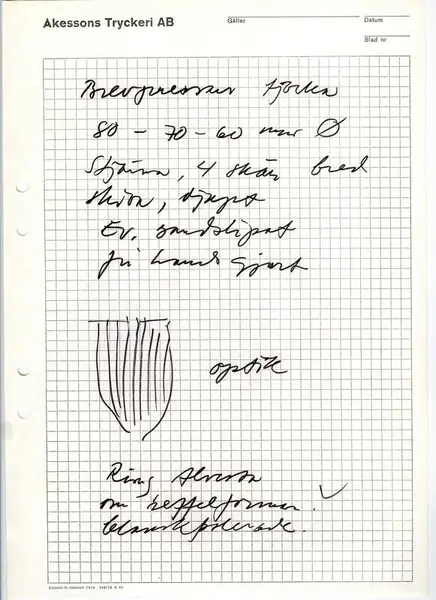 Åkessons Tryckeri AB
Gäller
Datum
Blad nr
Brevpressar tjocka
80 – 70 – 60 mm Ø
Stjärna, 4 skär bred
skiva, djupt
Ev. sandslipat
fri hand gjort
optik
Ring
om reffelformar.
blankpolerade.